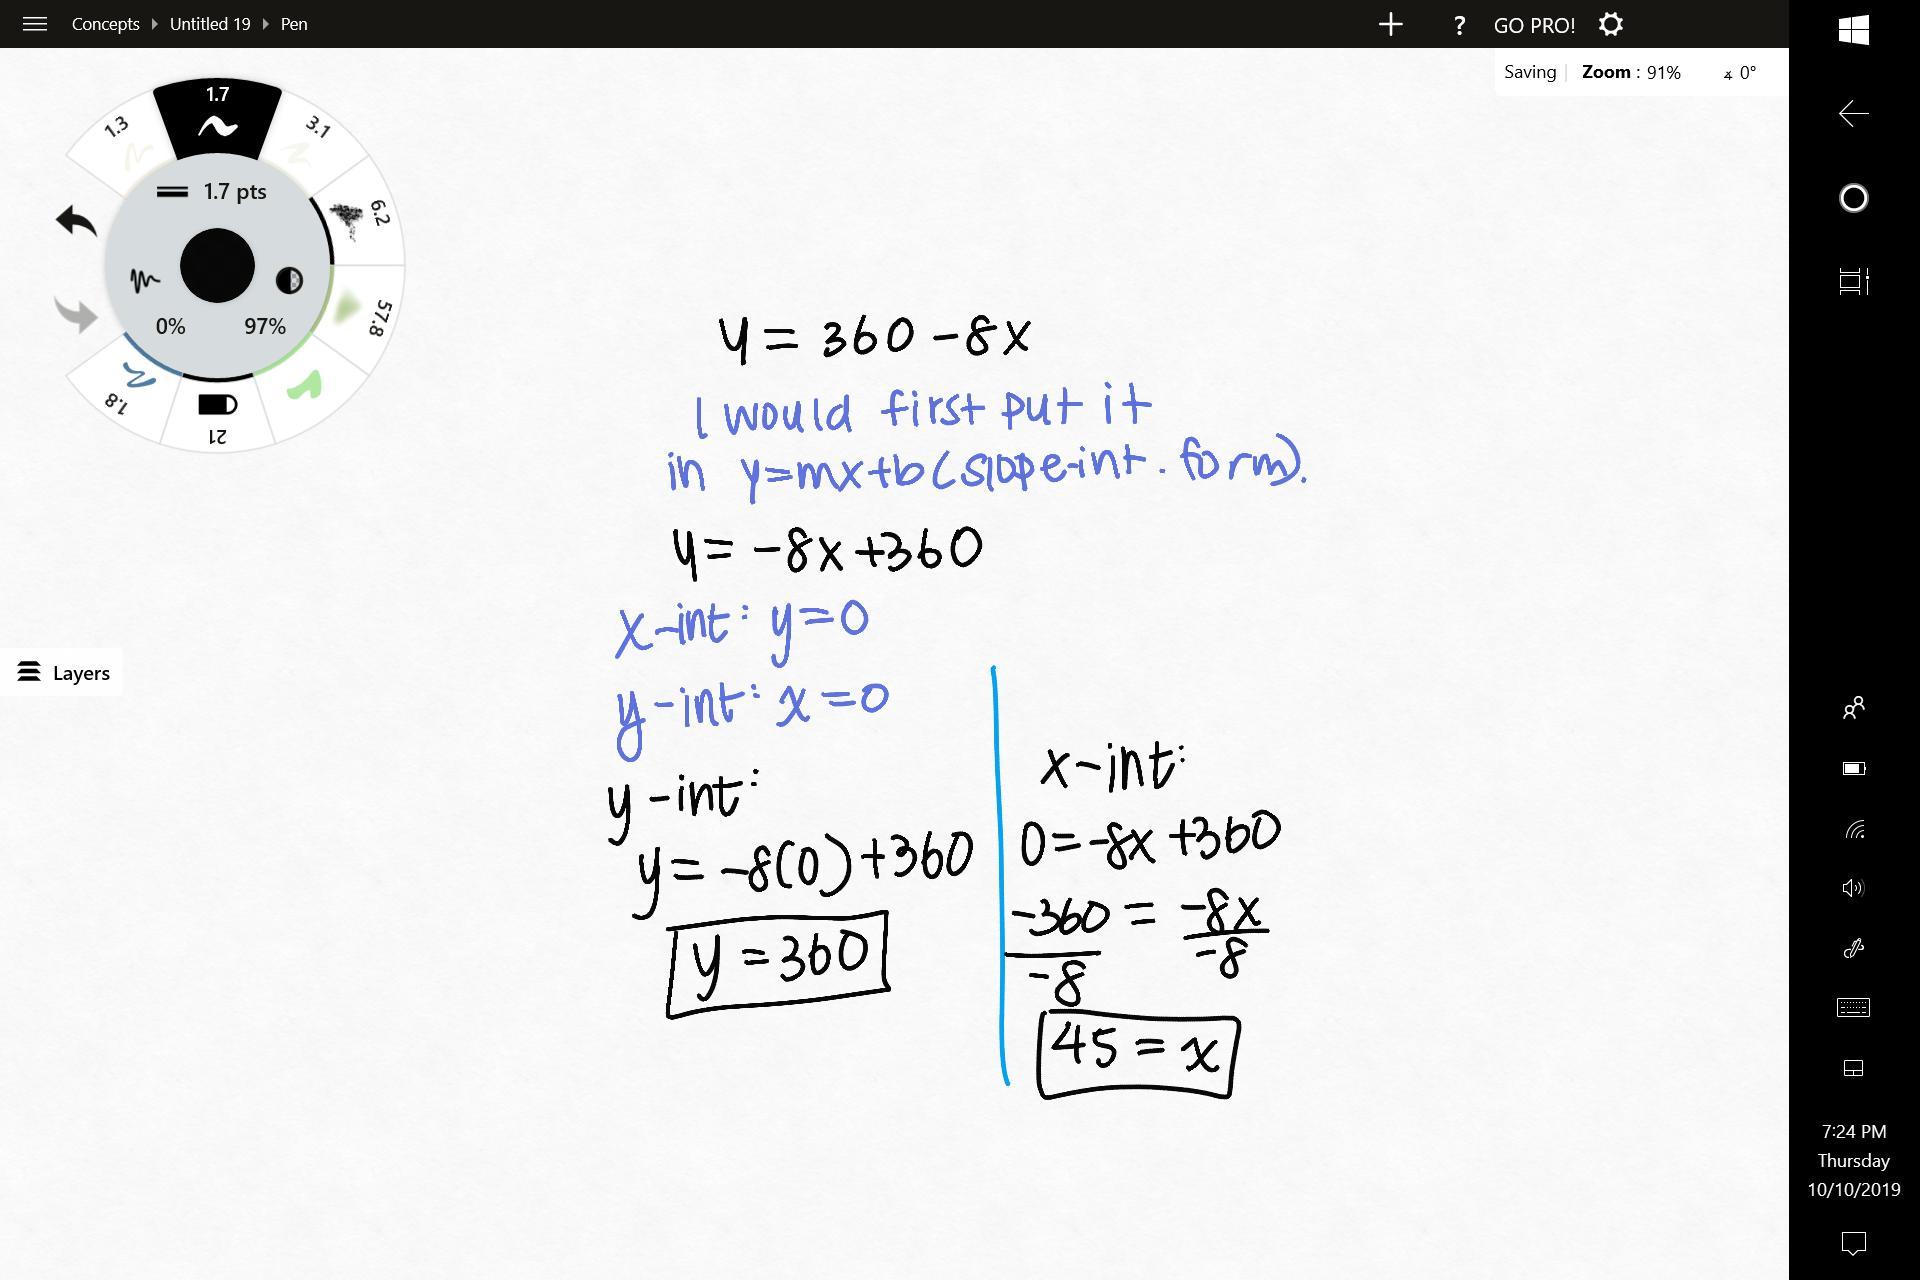 Concepts Untitled 19 Pen
+ ? GO PRO!
Saving Zoom : 91% 0°
1.3
1.7
3.1
6.2
57.8
21
1.8
1.7 pts
0% 97%
Layers
y = 360 - 8x
I would first put it
in y=mx+b (slope-int. form).
y = -8x + 360
x-int: y=0
y-int: x=0
y-int:
y = -8(0) + 360
y = 360
x-int:
0 = -8x + 360
-360 = -8x
-8 -8
45 = x
7:24 PM
Thursday
10/10/2019